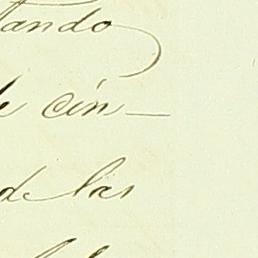 tando
de cin-
de las